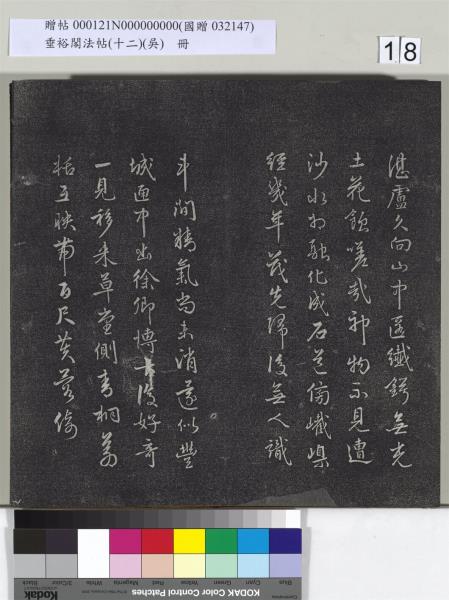 贈帖 000121N000000000(國贈 032147)
垂裕閣法帖(十二)(吳) 冊
18
湛盧久向山中匿鐵鍔無光
土花蝕嗟哉神物不見遭
沙水相融化成石蒼傷巉㟳
經幾年歲先歸後無人識
斗間精氣尚未消遂似豐
城匣中出徐卿博古復好奇
一見移來草堂側青桐翦
栝互映帶百尺黃蘿倚
Blue Cyan Green Yellow Red Magenta White 3/Color Black
KODAK Color Control Patches